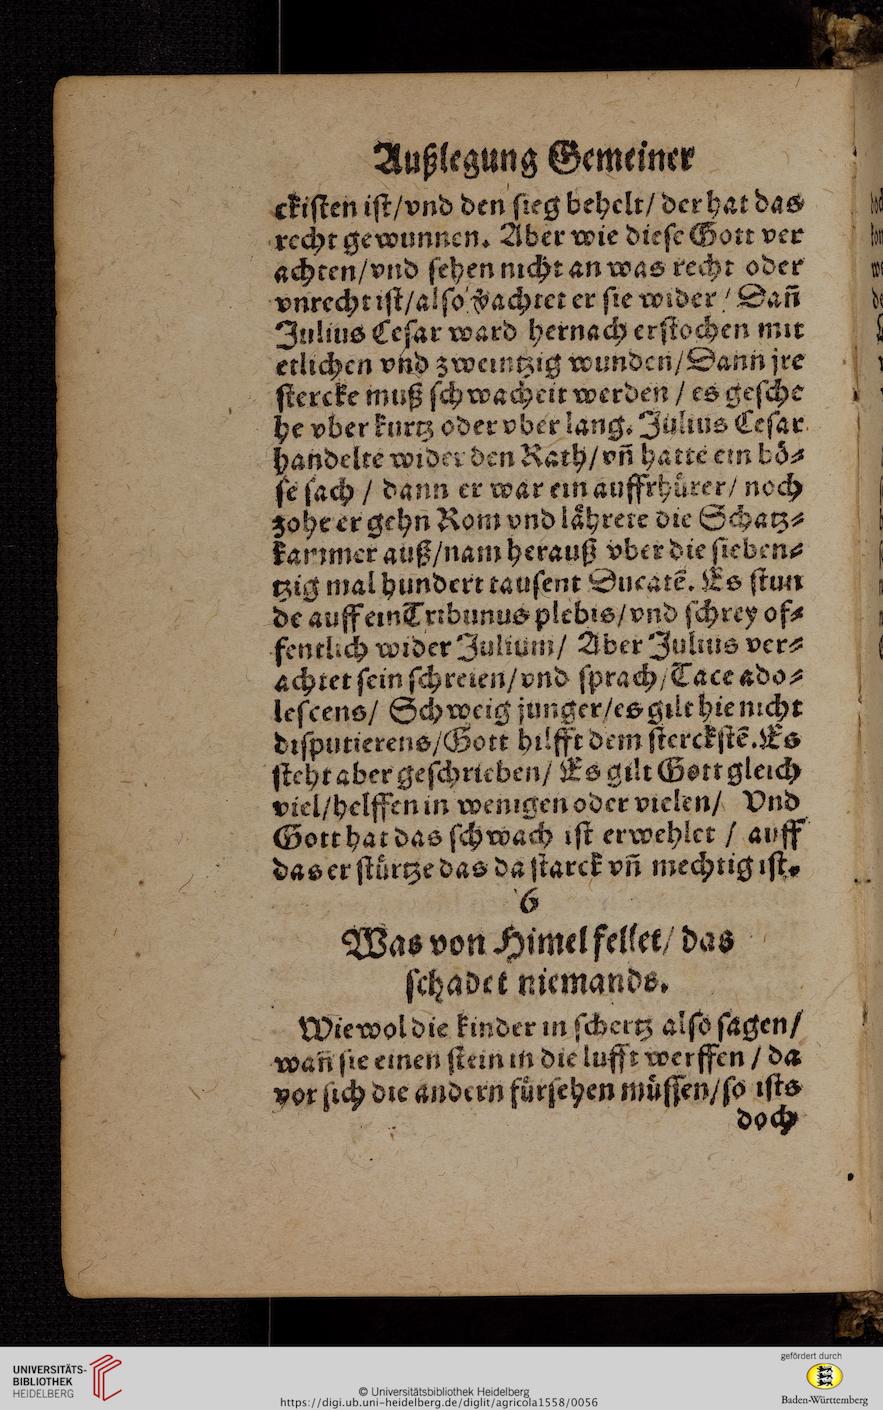 Außlegung Gemeiner
ckisten ist/vnd den sieg behelt/der hat das
recht gewunnen. Aber wie diese Gott ver
achten/vnd sehen nicht an was recht oder
vnrecht ist/also achtet er sie wider/Dañ
Julius Cesar ward hernach erstochen mit
etlichen vnd zweintzig wunden/Dann jre
stercke muß schwacheit werden/es gesche
he vber kurtz oder vber lang. Julius Cesar
handelte wider den Rath/vñ hatte ein bö⸗
se sach/dann er war ein auffrhürer/noch
zohe er gehn Rom vnd lährete die Schatz⸗
kammer auß/nam herauß vber die sieben⸗
tzig mal hundert tausent Ducatẽ. Es stun
de auff ein Tribunus plebis/vnd schrey of⸗
fentlich wider Julium/Aber Julius ver⸗
achtet sein schreien/vnd sprach/Tace ado⸗
lescens/Schweig junger/es gilt hie nicht
disputierens/Gott hilfft dem sterckstẽ. Es
steht aber geschrieben/Es gilt Gott gleich
viel/helffen in wenigen oder vielen/Vnd
Gott hat das schwach ist erwehlet/auff
das er stürtze das da starck vñ mechtig ist.
6
Was von Himel fellet/das
schadet niemands.
Wiewol die kinder in schertz also sagen/
wañ sie einen stein in die lufft werffen/da
vor sich die andern fürsehen müssen/so ists
doch
UNIVERSITÄTS-
BIBLIOTHEK
HEIDELBERG
© Universitätsbibliothek Heidelberg
https://digi.ub.uni-heidelberg.de/diglit/agricola1558/0056
gefördert durch
Baden-Württemberg